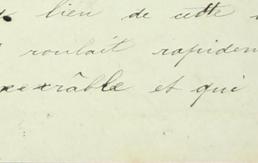 lieu de cette
roulait rapidem
exécrable et qui